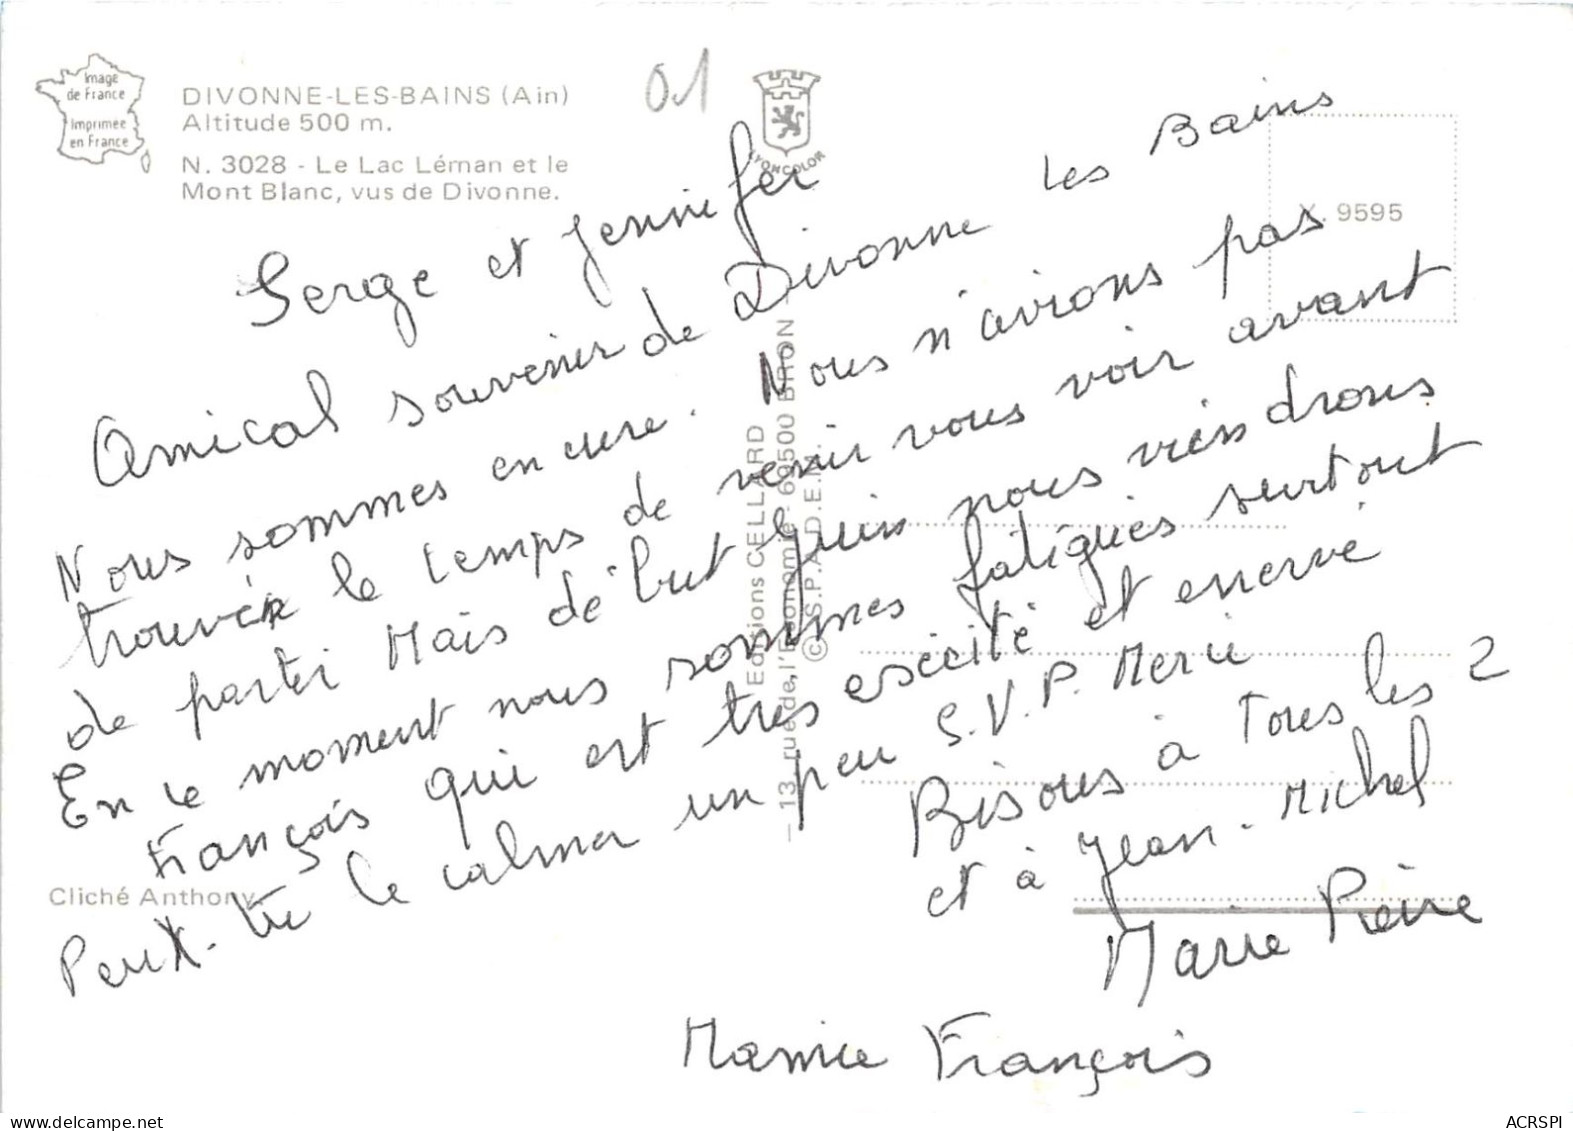 Image
de France
Imprimée
en France
DIVONNE-LES-BAINS (Ain)
Altitude 500 m.
N. 3028 - Le Lac Léman et le
Mont Blanc, vus de Divonne.
01
LYONCOLOR
X. 9595
Serge et Jennifer
Amical souvenir de Divonne les Bains
Nous sommes en cure. Nous n'avions pas
trouver le temps de venir vous voir avant
de partir Mais début Juin nous viendrons
En ce moment nous sommes fatigués surtout
François qui est très excité et enervé
Peux-tu le calmer un peu S.V.P. Merci
Bisous à Tous les 2
et à Jean-Michel
Marie Pierre
Mamie François
Cliché Anthony
Editions CELLARD
— 13, rue de l'Economie - 69500 BRON —
© S.P.A.D.E.M.
ACRSPI